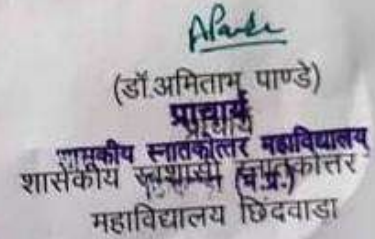 (डॉ.अमिताभ पाण्डे)
प्राचार्य
प्राचार्य
शासकीय स्नातकोत्तर महाविद्यालय
शासकीय स्वशासी स्नातकोत्तर
महाविद्यालय छिंदवाडा